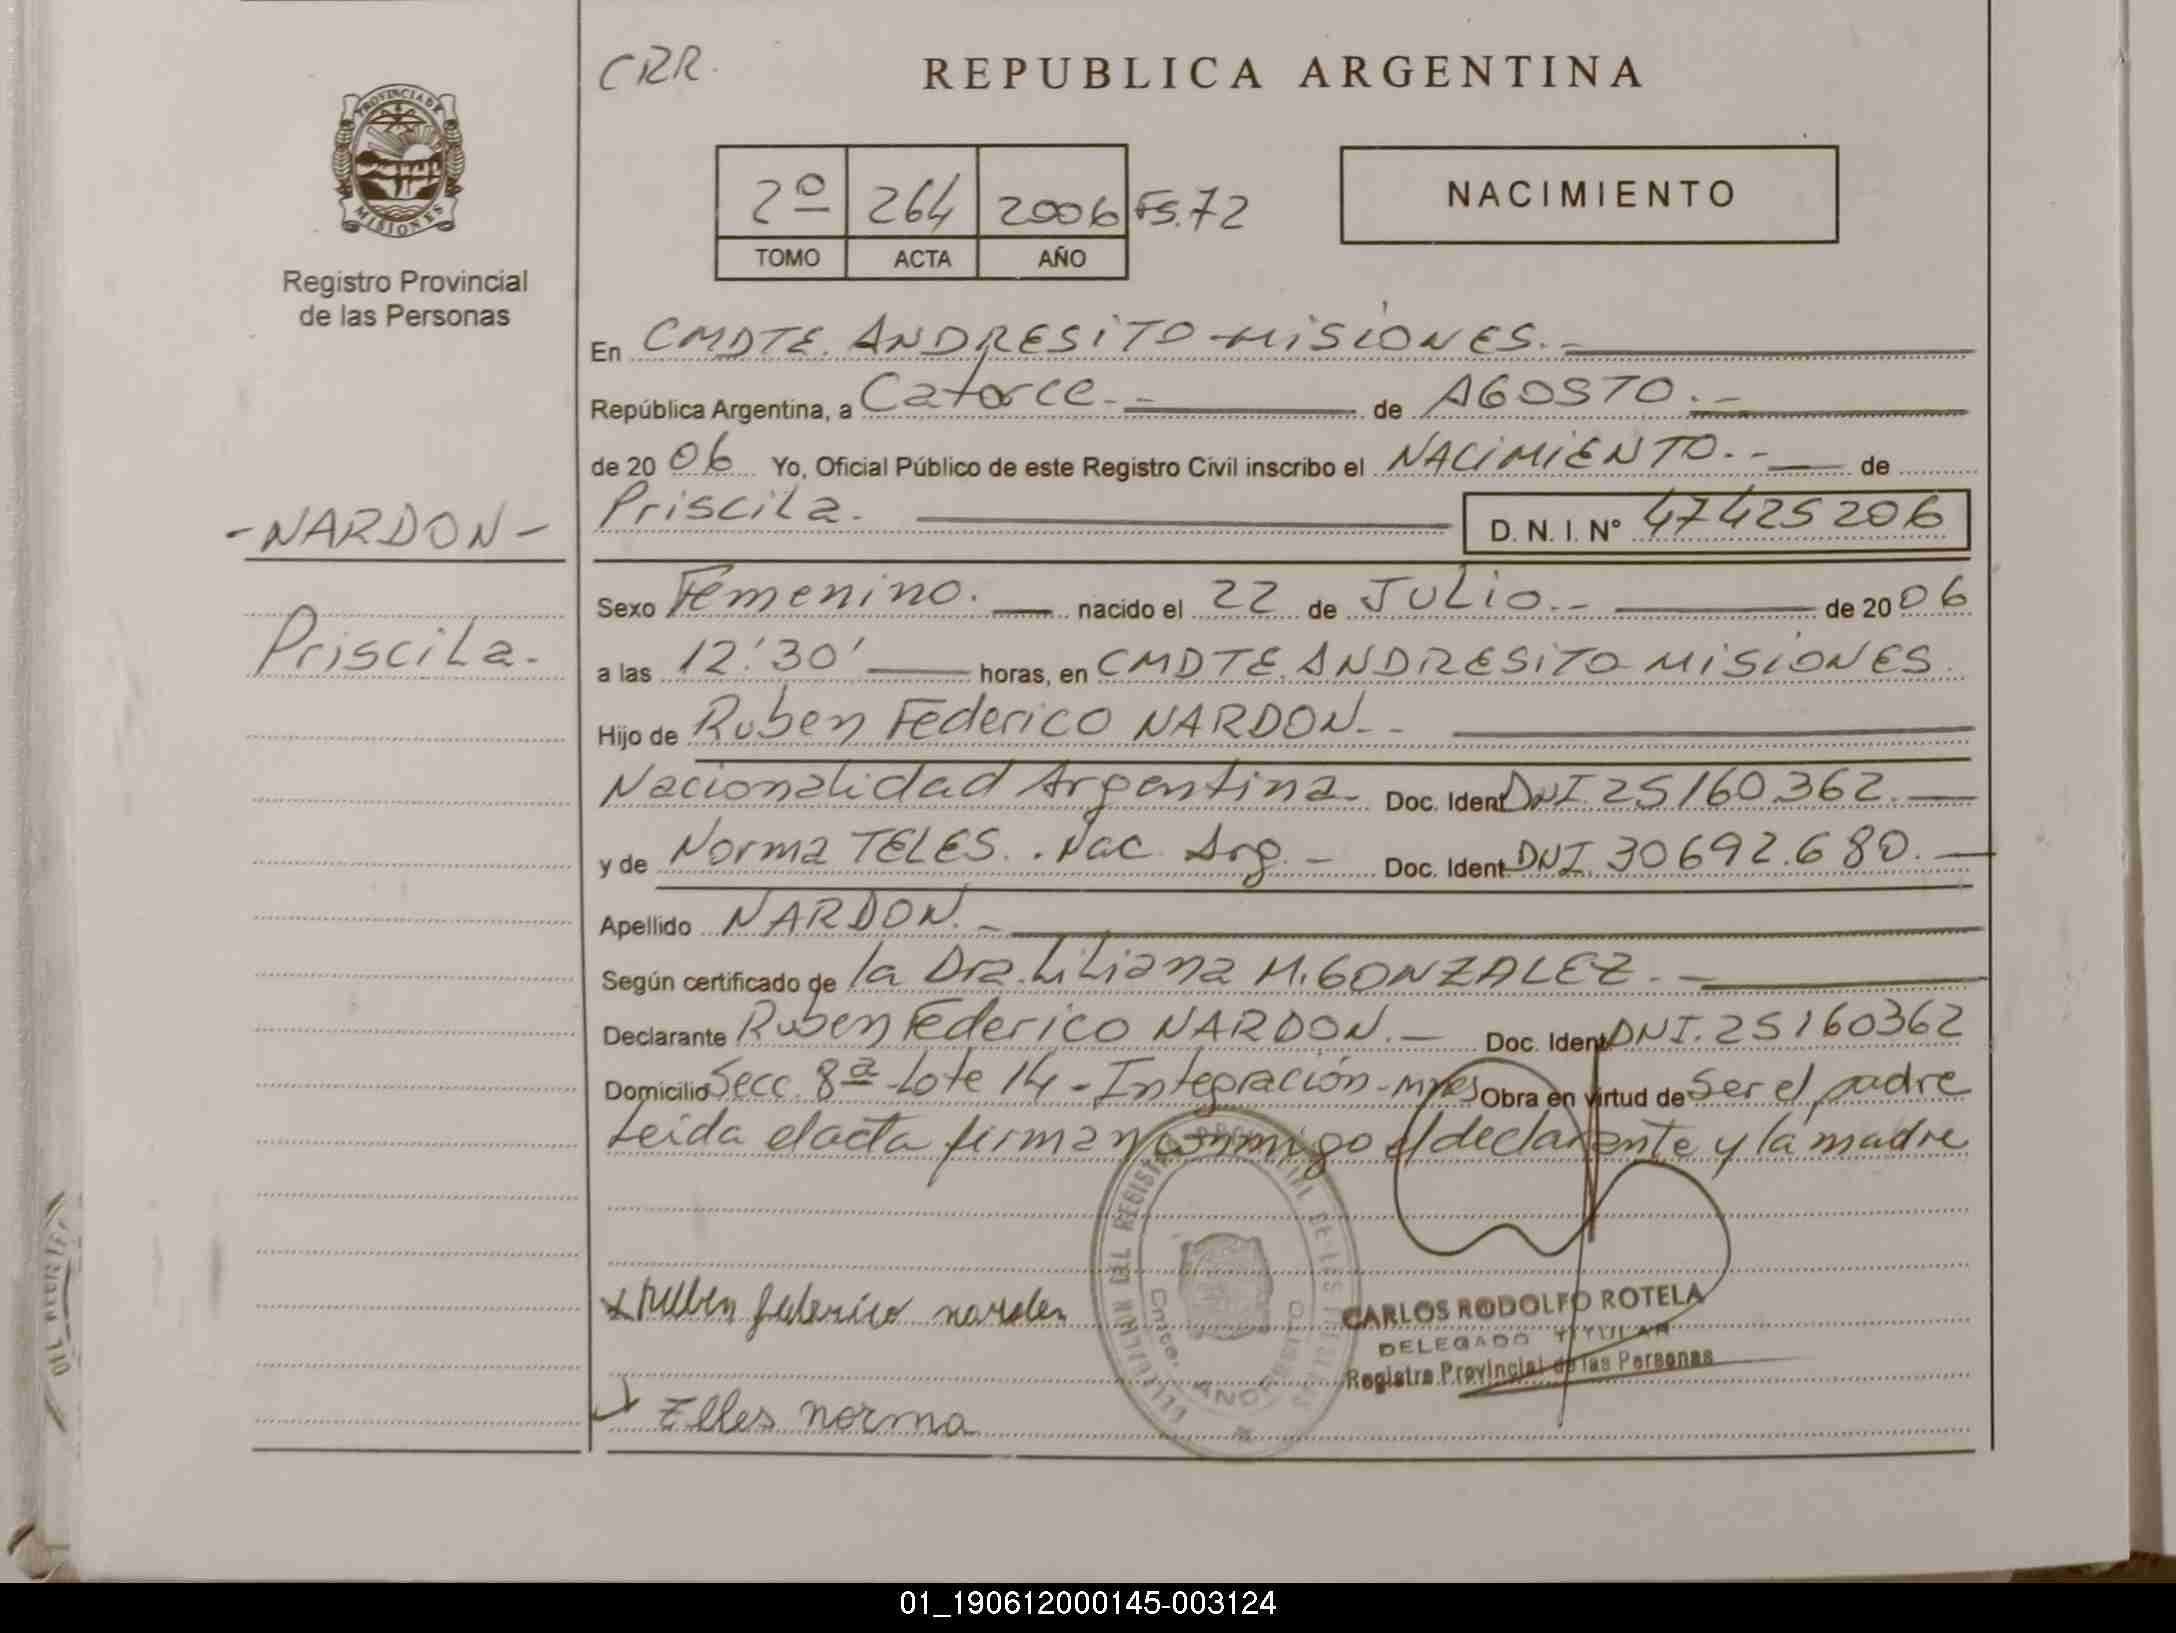 CRR.
REPUBLICA ARGENTINA
PROVINCIA DE
MISIONES
Registro Provincial
de las Personas
2º 264 2006 Fs.72
TOMO ACTA AÑO
NACIMIENTO
En CMDTE. ANDRESITO-MISIONES.-
República Argentina, a Catorce.- de AGOSTO.-
de 20 06 Yo, Oficial Público de este Registro Civil inscribo el NACIMIENTO.- de
Priscila. D. N. I. Nº 47425206
-NARDON-
Priscila.
Sexo Femenino. nacido el 22 de JULIO.- de 20 06
a las 12'30' horas, en CMDTE. ANDRESITO-MISIONES.
Hijo de Ruben Federico NARDON.-
Nacionalidad Argentina- Doc. Ident DNI. 25160.362.
y de Norma TELES. . Nac. Arg. - Doc. Ident DNI. 30692.680.
Apellido NARDON. -
Según certificado de la Dra. Liliana M. GONZALEZ. -
Declarante Ruben Federico NARDON. - Doc. Ident DNI. 25160362
Domicilio Secc. 8ª-Lote 14-Integración-Mnes Obra en virtud de ser el padre
Leida el acta firman conmigo el declarante y la madre
Ruben federico nardon
CARLOS RODOLFO ROTELA
DELEGADO TITULAR
Registro Provincial de las Personas
norma
Cmte. ANDRESITO
01_190612000145-003124